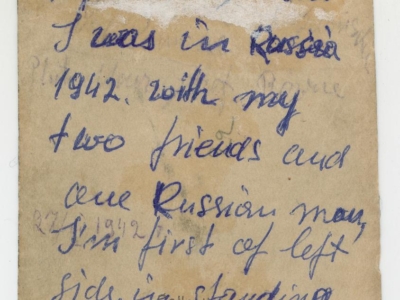 I was in Russia
1942. with my
two friends and
one Russian man,
27/ 1942
I'm first of left
side in standing